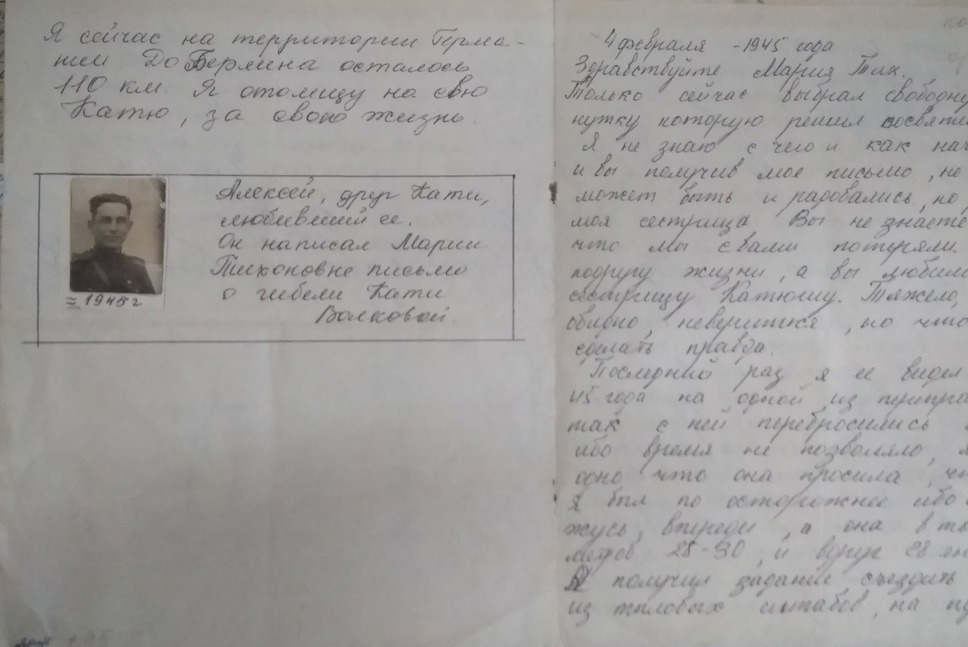 Я сейчас на территории Герма-
нии До Берлина осталось
110 км. Я отомщу на свю
Катю, за свою жизнь.
Алексей, друг Кати,
любивший ее.
Он написал Марии
Тихоновне письмо
о гибели Кати
Волковой.
≈ 1945 г
4 февраля - 1945 года
Здравствуйте Мария Тих.
Только сейчас выбрал свободну
нутку которую решил посвяти
Я не знаю с чего и как нач
и вы получив мое письмо, не
может быть и радовались, но
моя сестрица Вы не знаете
что мы с вами потеряли.
подругу жизни, а вы любим
сестрицу Катюшу. Тяжело,
обидно, неверится, но что
сделать правда.
Последний раз я ее видел
45 года на одной из перепра
так с ней перебросились
ибо время не позволяло,
одно что она просила, чт
я был по осторожнее ибо
жусь впереди, а она в ты
25-30, и вдруг 28 ян
Я получил задание съездить
из тыловых штабов, на п